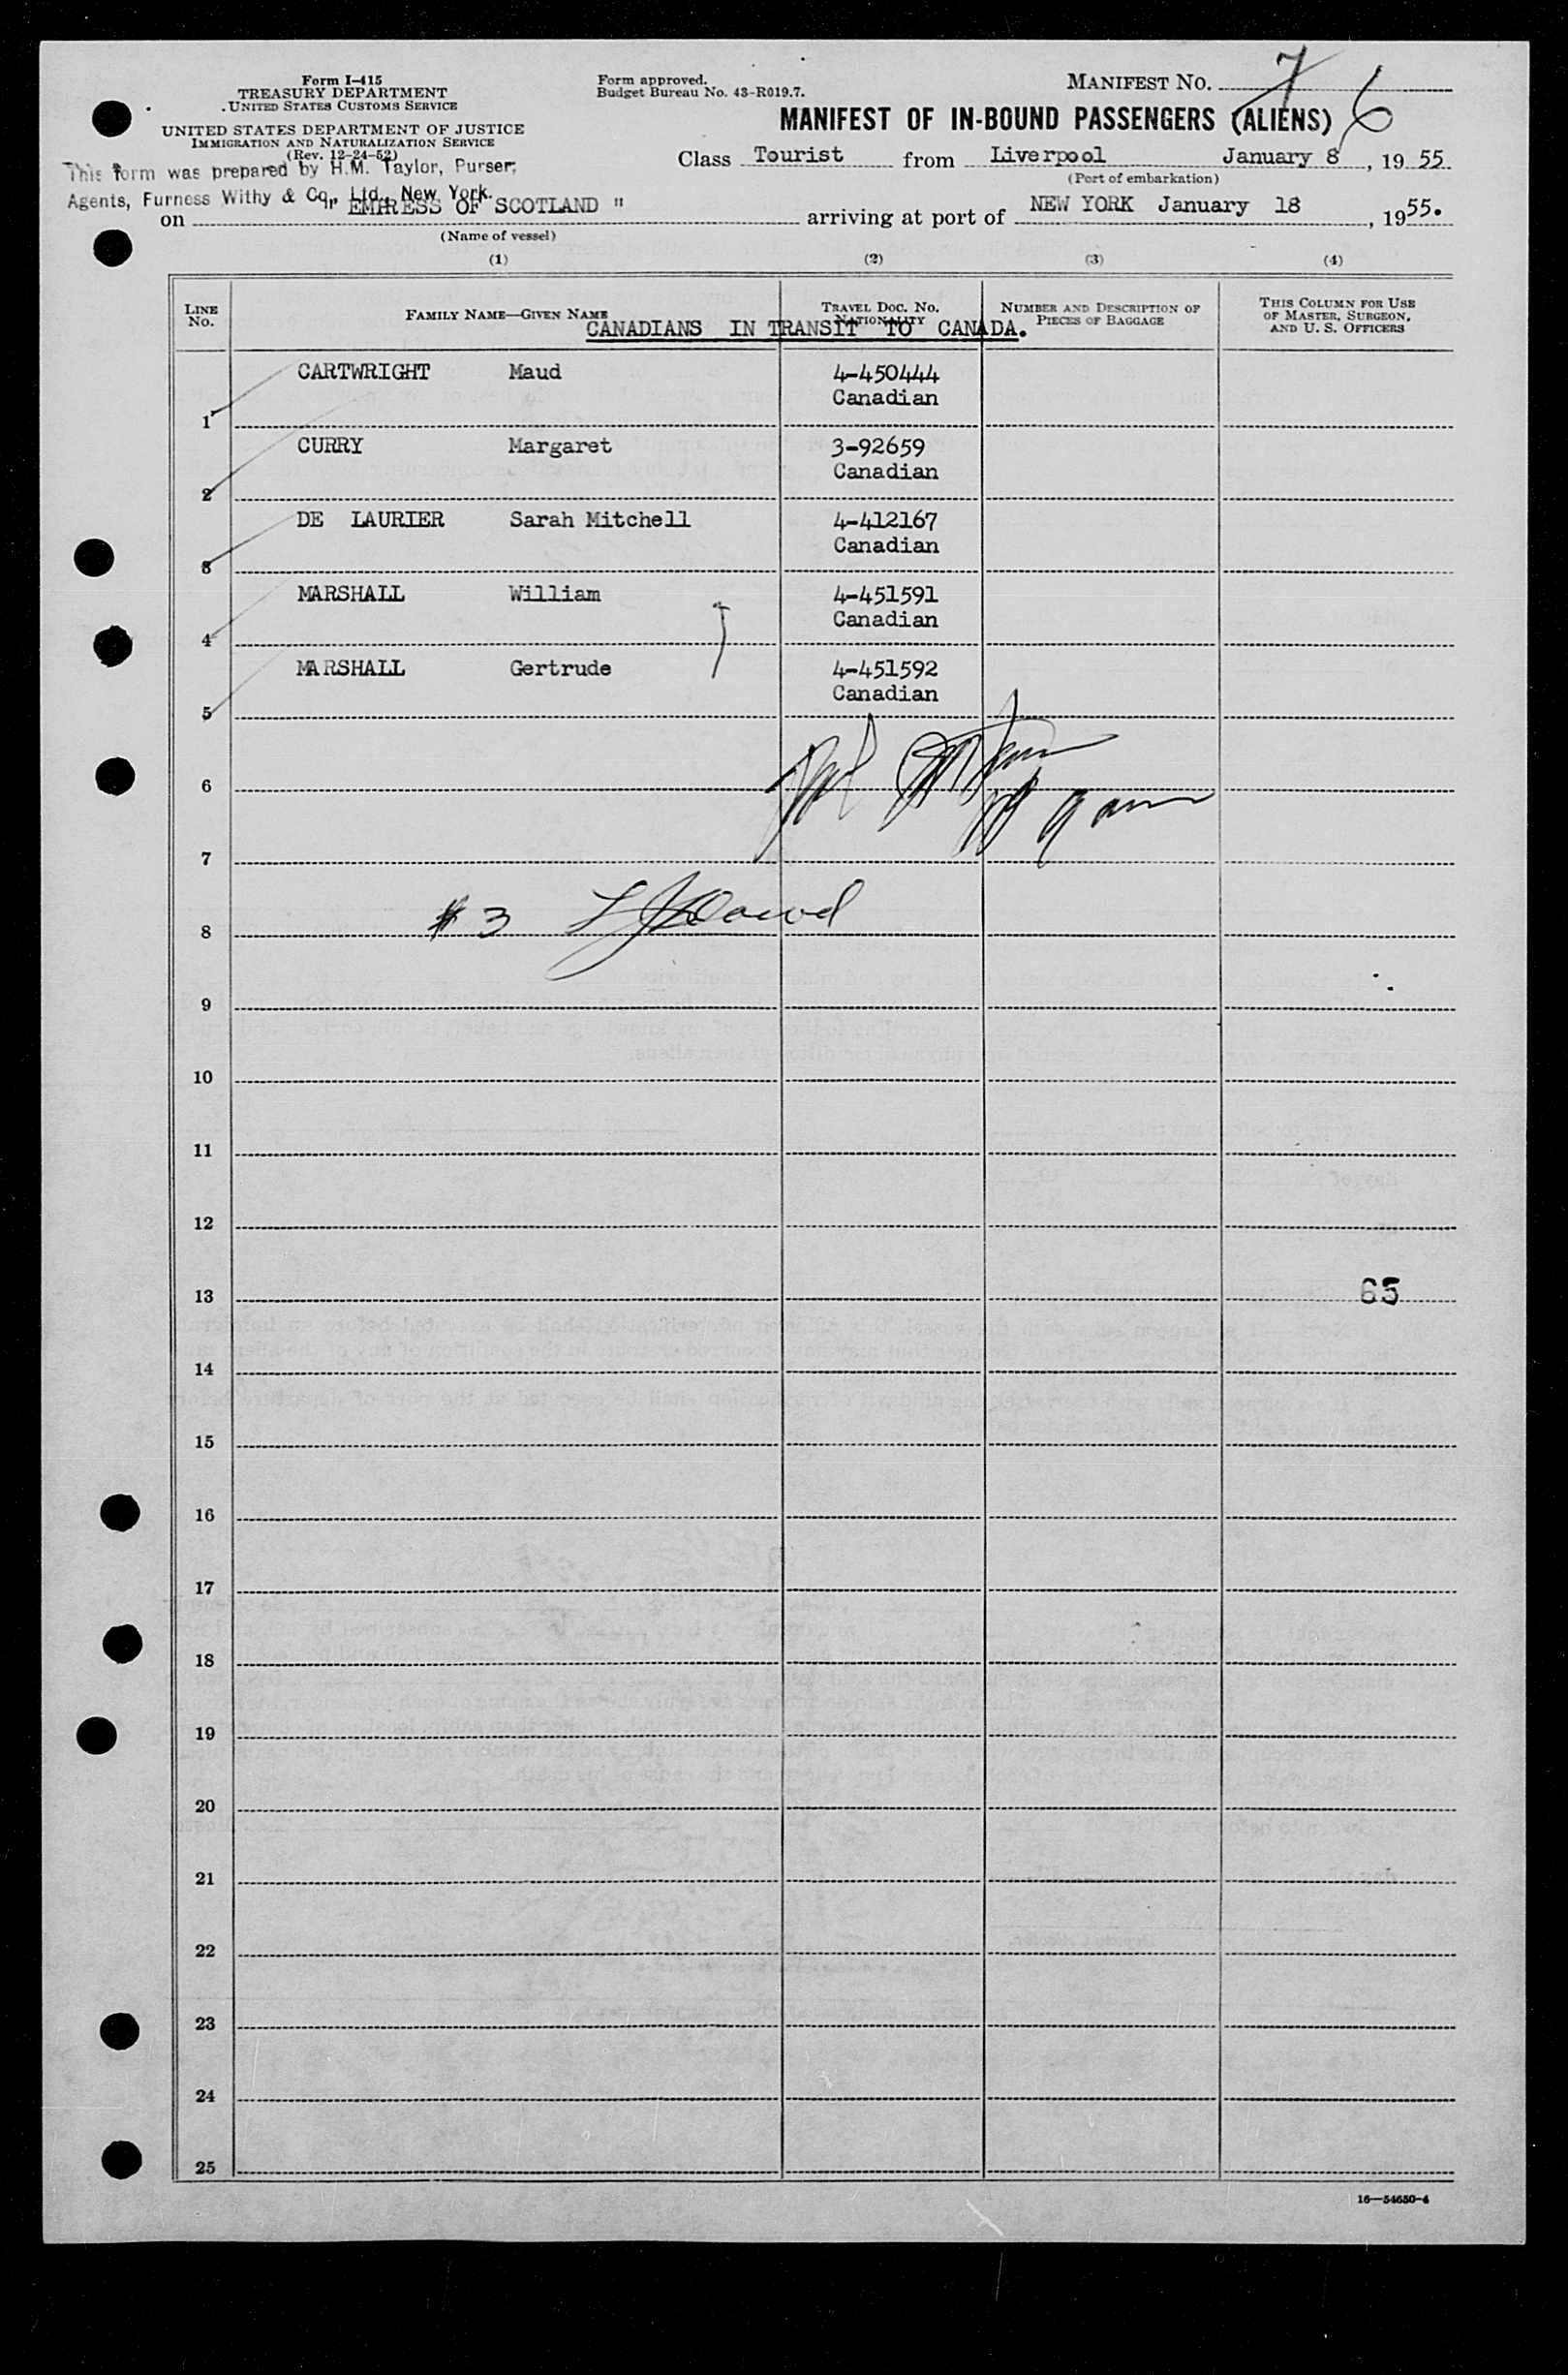 Form I-415
TREASURY DEPARTMENT
UNITED STATES CUSTOMS SERVICE
UNITED STATES DEPARTMENT OF JUSTICE
IMMIGRATION AND NATURALIZATION SERVICE
(Rev. 12-24-52)
This form was prepared by H.M. Taylor, Purser,
Agents, Furness Withy & Co., Ltd., New York.
Form approved.
Budget Bureau No. 43-R019.7.
MANIFEST NO. 7 6
MANIFEST OF IN-BOUND PASSENGERS (ALIENS)
Class Tourist from Liverpool January 8, 1955
(Port of embarkation)
on " EMPRESS OF SCOTLAND " arriving at port of NEW YORK January 18, 1955.
(Name of vessel)
(1) (2) (3) (4)
LINE NO. FAMILY NAME—GIVEN NAME TRAVEL DOC. NO. NATIONALITY NUMBER AND DESCRIPTION OF PIECES OF BAGGAGE THIS COLUMN FOR USE OF MASTER, SURGEON, AND U. S. OFFICERS
CANADIANS IN TRANSIT TO CANADA.
CARTWRIGHT Maud 4-450444
Canadian
1
CURRY Margaret 3-92659
Canadian
2
DE LAURIER Sarah Mitchell 4-412167
Canadian
3
MARSHALL William 4-451591
Canadian
4
MARSHALL Gertrude 4-451592
Canadian
5
6
7
# 3
8
9
10
11
12
13 65
14
15
16
17
18
19
20
21
22
23
24
25
16—54650-4